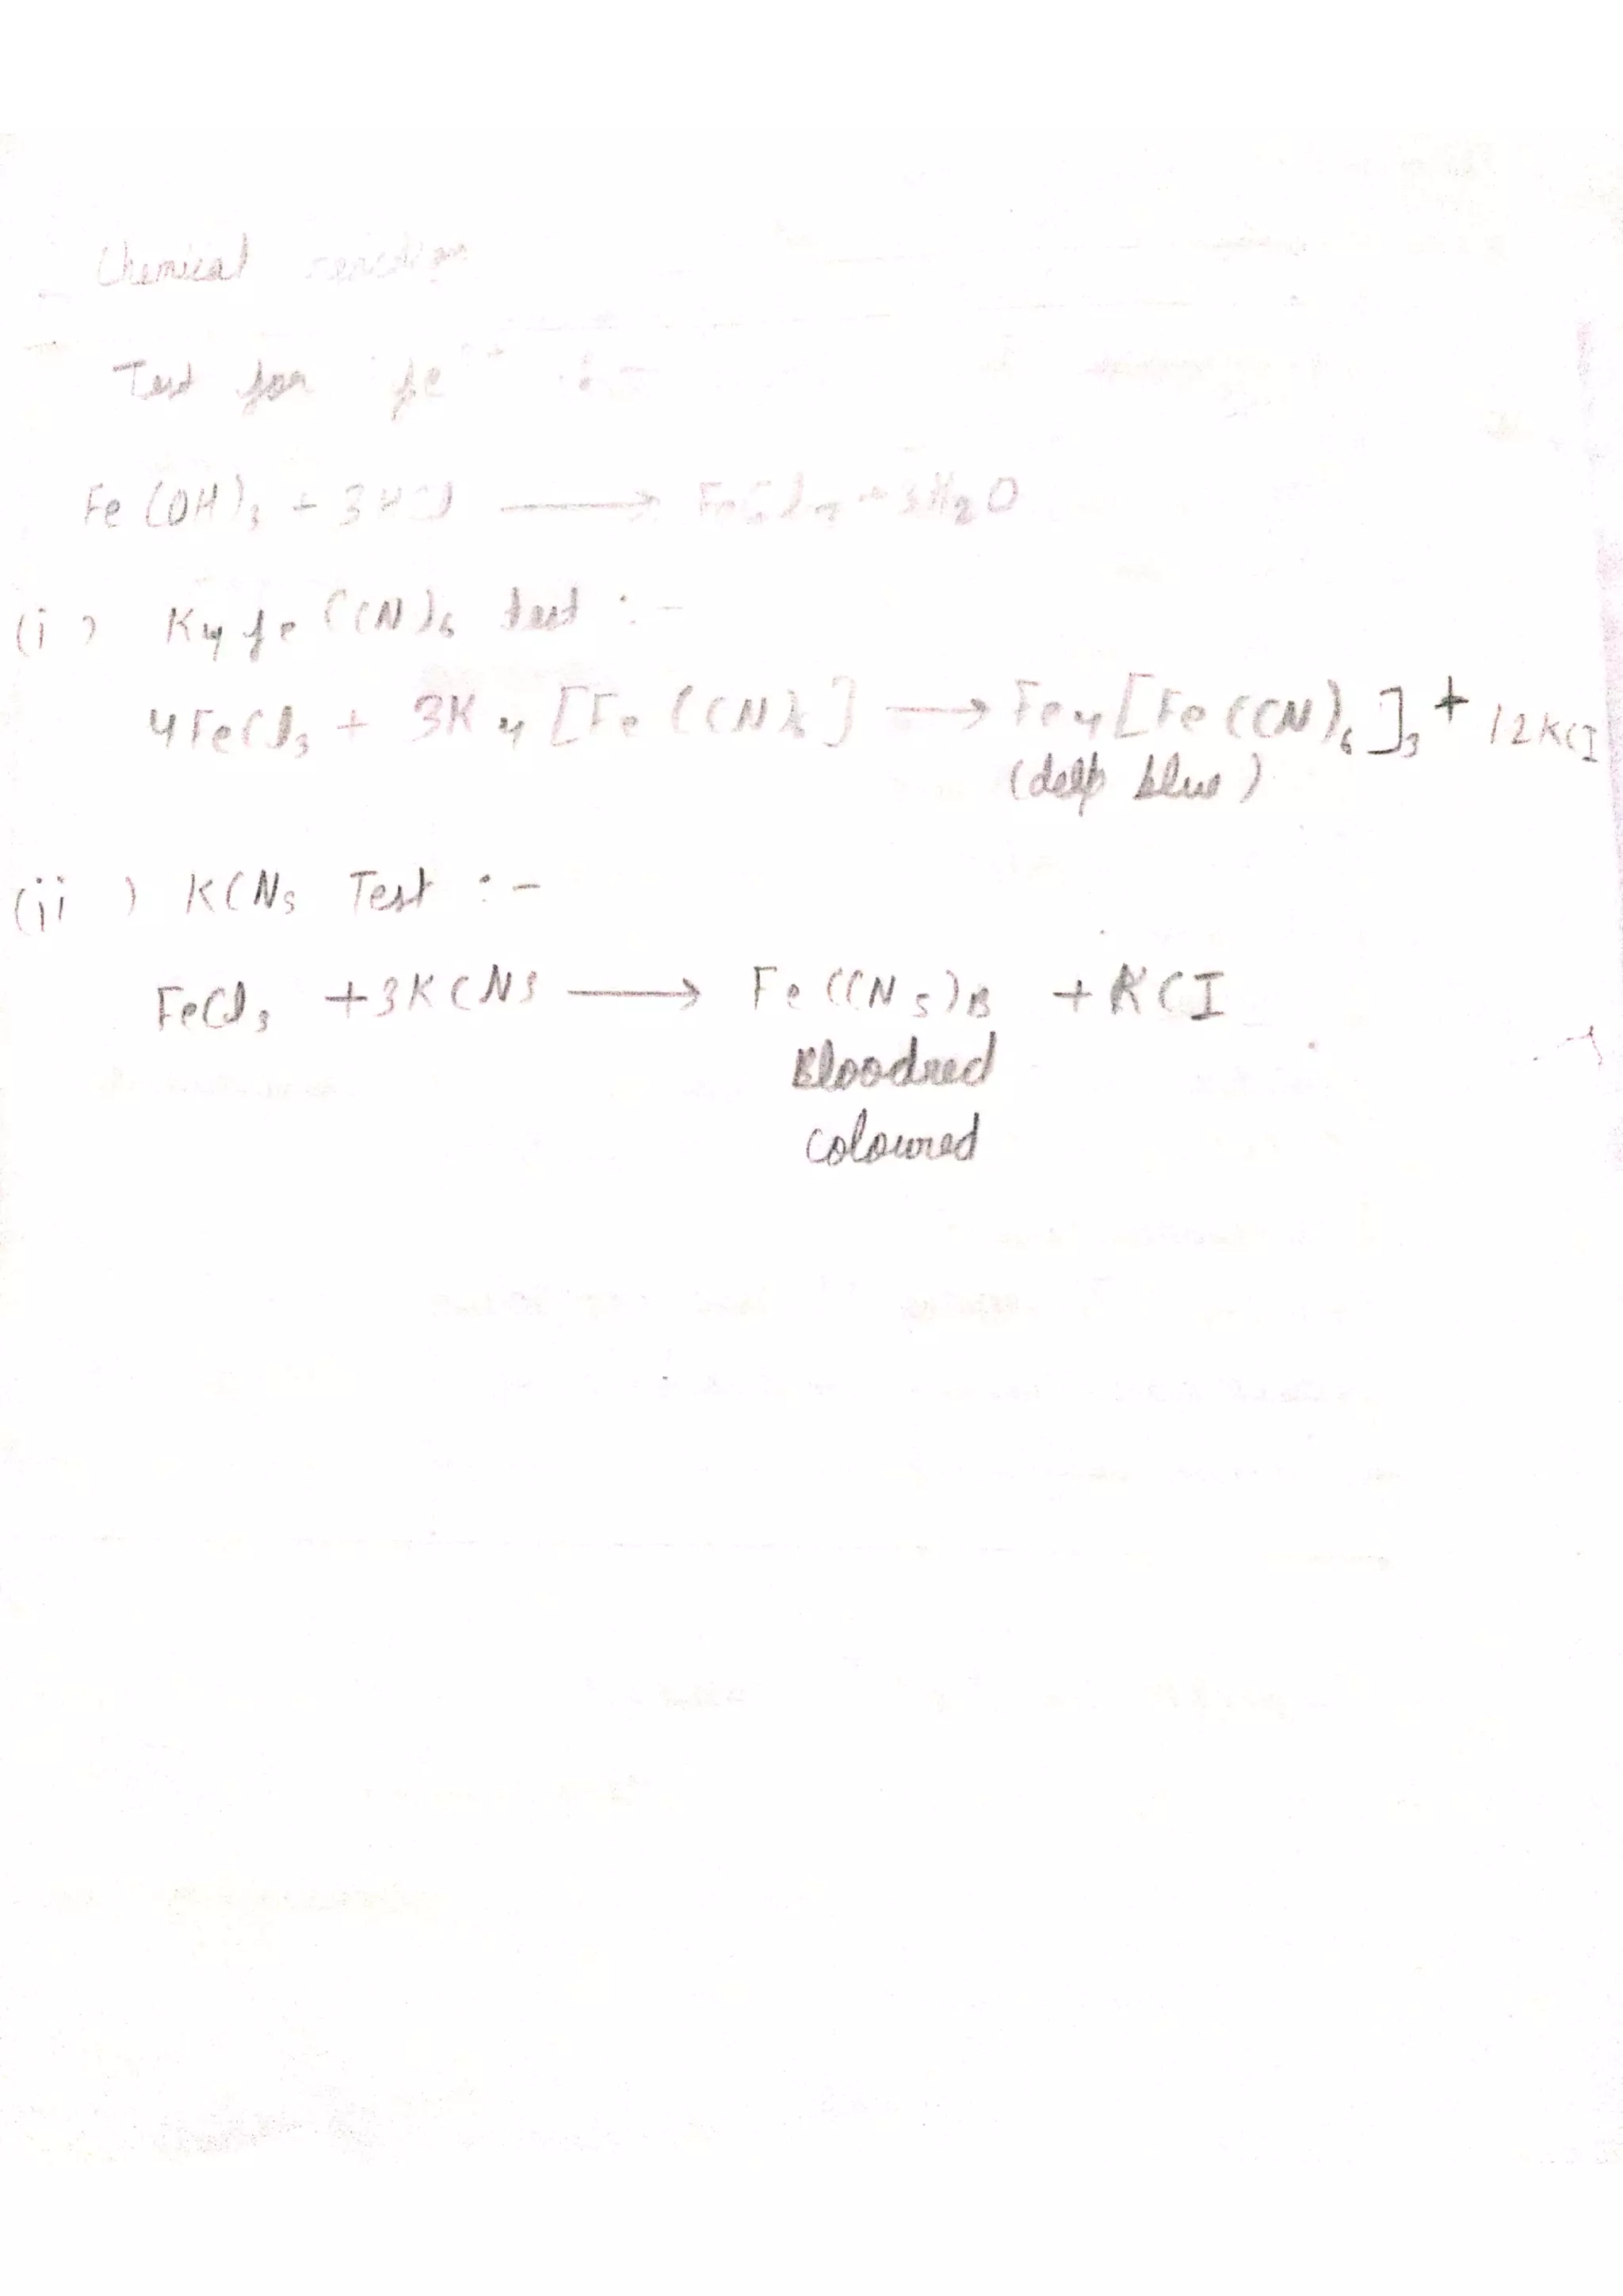 Chemical reaction
Test for fe
Fe (OH)₃ + 3HCl ⟶ FeCl₃ + 3H₂O
(i) K₄fe(CN)₆ test :-
4FeCl₃ + 3K₄[Fe(CN)₆] ⟶ Fe₄[Fe(CN)₆]₃ + 12KCI
(deep blue)
(ii) KCNs Test :-
FeCl₃ +3KCNS ⟶ Fe(CNS)₃ + KCI
Bloodred
coloured